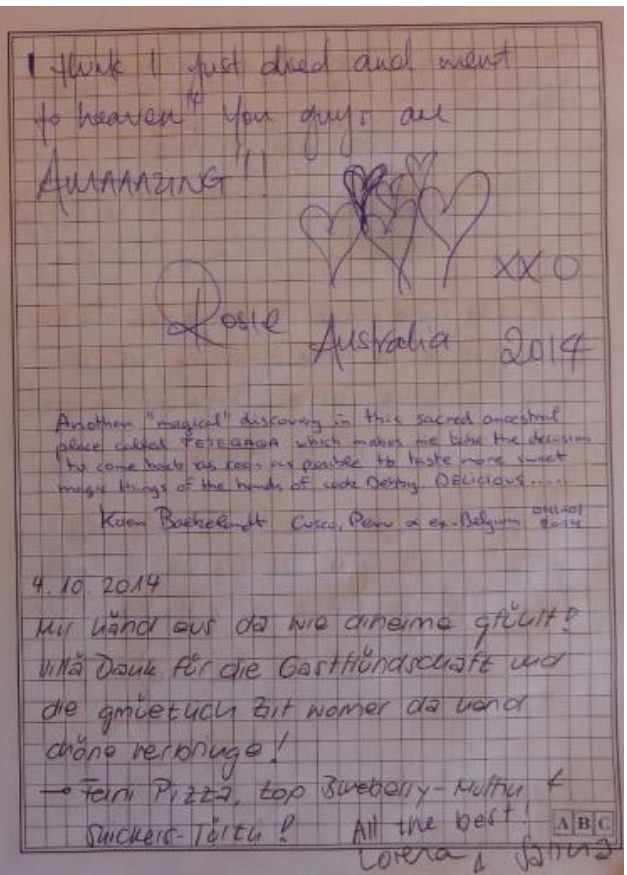 I think I just died and went
to heaven"! You guys are
AMAAAZING"!!
XXO
Rosie Australia 2014
Another "magical" discovery in this sacred ancestral
place called which makes me take the decision
to come back as soon as posible to taste more sweet
magic things of the hands of Debby. DELICIOUS.....
Koen Cusco, Peru ex-Belgium 2014
4.10.2014
Mir händ eus da wie diheime gfühlt!
Villä Dank für die Gastfründschaft und
die gmüetlich Zit womer da händ
chöne verbringe!
→ Feini Pizza, top Blueberry-Muffin &
Snickers-Törtli! All the best!
Lorena
ABC